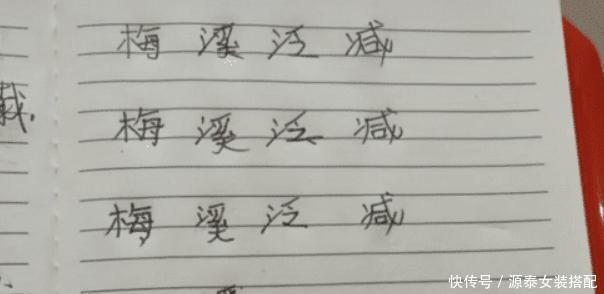 梅溪泛减
裁.
梅溪泛减
梅溪泛减
快传号／源泰女装搭配